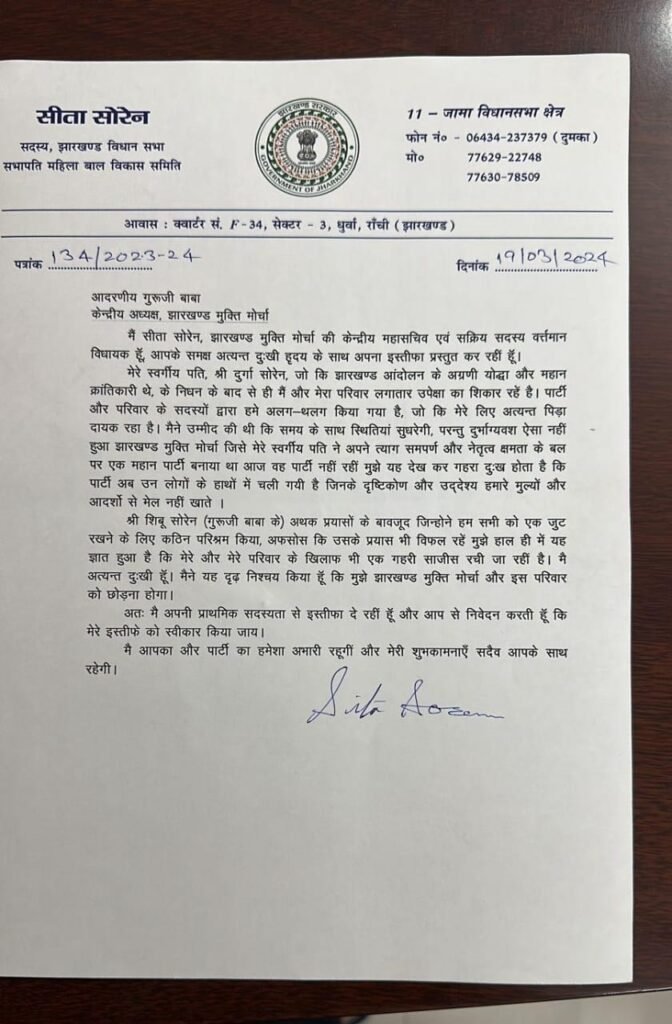 सीता सोरेन
सदस्य, झारखण्ड विधान सभा
सभापति महिला बाल विकास समिति
झारखण्ड सरकार
GOVERNMENT OF JHARKHAND
11 – जामा विधानसभा क्षेत्र
फोन नं० - 06434-237379 ( दुमका )
मो० 77629-22748
77630-78509
आवास : क्वार्टर सं. F-34, सेक्टर - 3, धुर्वा, राँची ( झारखण्ड )
पत्रांक 134/2023-24
दिनांक 19/03/2024
आदरणीय गुरूजी बाबा
केन्द्रीय अध्यक्ष, झारखण्ड मुक्ति मोर्चा
मैं सीता सोरेन, झारखण्ड मुक्ति मोर्चा की केन्द्रीय महासचिव एवं सक्रिय सदस्य वर्त्तमान
विधायक हूँ, आपके समक्ष अत्यन्त दुःखी हृदय के साथ अपना इस्तीफा प्रस्तुत कर रहीं हूँ।
मेरे स्वर्गीय पति, श्री दुर्गा सोरेन, जो कि झारखण्ड आंदोलन के अग्रणी योद्धा और महान
क्रांतिकारी थे, के निधन के बाद से ही मैं और मेरा परिवार लगातार उपेक्षा का शिकार रहें है। पार्टी
और परिवार के सदस्यों द्वारा हमे अलग–थलग किया गया है, जो कि मेरे लिए अत्यन्त पिड़ा
दायक रहा है। मैने उम्मीद की थी कि समय के साथ स्थितियां सुधरेगी, परन्तु दुर्भाग्यवश ऐसा नहीं
हुआ झारखण्ड मुक्ति मोर्चा जिसे मेरे स्वर्गीय पति ने अपने त्याग समपर्ण और नेतृत्व क्षमता के बल
पर एक महान पार्टी बनाया था आज वह पार्टी नहीं रहीं मुझे यह देख कर गहरा दुःख होता है कि
पार्टी अब उन लोगों के हाथों में चली गयी है जिनके दृष्टिकोण और उद्देश्य हमारे मुल्यों और
आदर्शो से मेल नहीं खाते ।
श्री शिबू सोरेन (गुरूजी बाबा के) अथक प्रयासों के बावजूद जिन्होने हम सभी को एक जुट
रखने के लिए कठिन परिश्रम किया, अफसोस कि उसके प्रयास भी विफल रहें मुझे हाल ही में यह
ज्ञात हुआ है कि मेरे और मेरे परिवार के खिलाफ भी एक गहरी साजीस रची जा रहीं है। मै
अत्यन्त दुःखी हूँ। मैने यह दृढ़ निश्चय किया हूँ कि मुझे झारखण्ड मुक्ति मोर्चा और इस परिवार
को छोड़ना होगा।
अतः मै अपनी प्राथमिक सदस्यता से इस्तीफा दे रहीं हूँ और आप से निवेदन करती हूँ कि
मेरे इस्तीफे को स्वीकार किया जाय।
मै आपका और पार्टी का हमेशा अभारी रहूगीं और मेरी शुभकामनाएँ सदैव आपके साथ
रहेगी।
Sita Soren